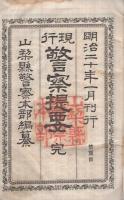 明治二十年 月刊行
現行
警察提要 完
山梨縣警察本部編纂